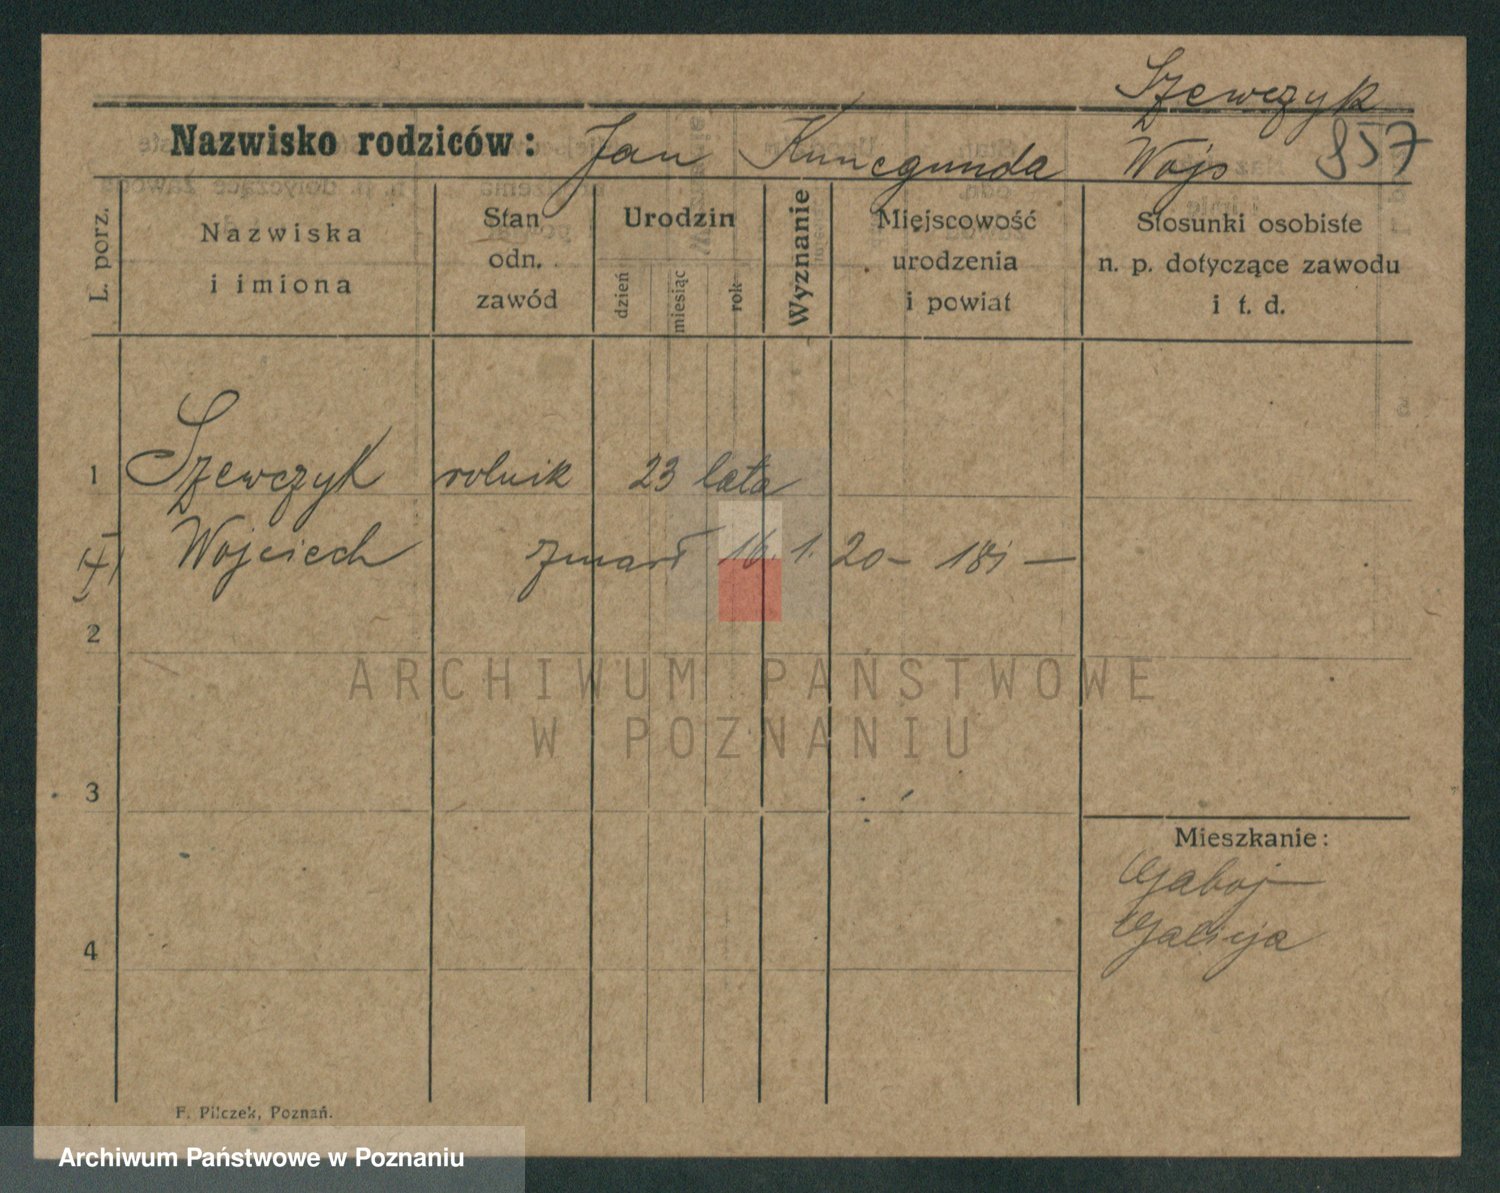 Szewczyk
Nazwisko rodziców: Jan Kunegunda Wojs 857
L. porz.
Nazwiska
i imiona
Stan
odn.
zawód
Urodzin
dzień
miesiąc
rok
Wyznanie
Miejscowość
urodzenia
i powiat
Stosunki osobiste
n. p. dotyczące zawodu
i t. d.
1 Szewczyk rolnik 23 lata
Wojciech zmarł 16. 1. 20 - 181 -
2
3
4
Mieszkanie:
Gaboj
Galicja
F. Pilczek, Poznań.
ARCHIWUM PAŃSTWOWE
W POZNANIU
Archiwum Państwowe w Poznaniu